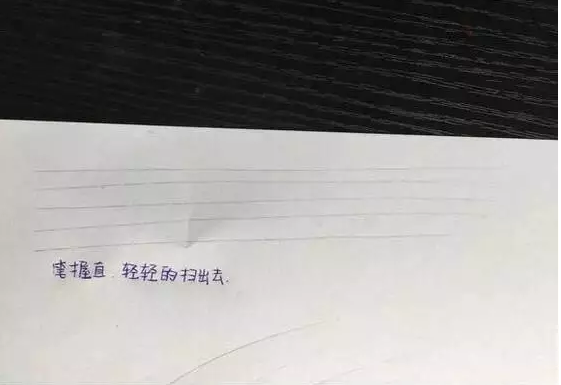 笔握直,轻轻的扫出去.